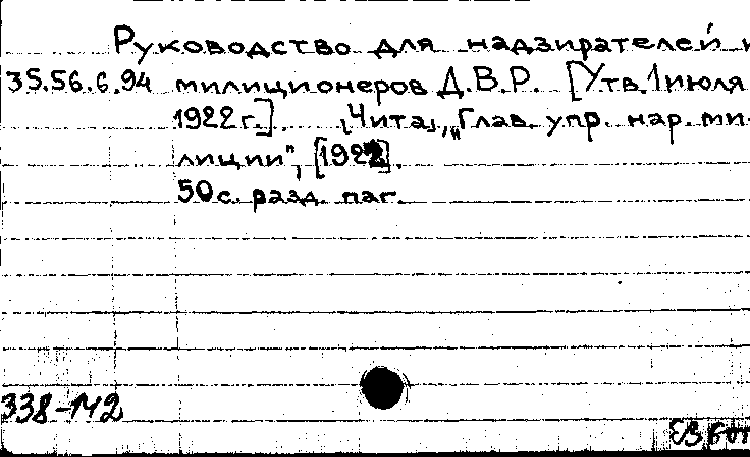 Руководство для надзирателей и
35.56.6.94 милиционеров Д.В.Р. [Утв. 1 июля
1922 г.]. [Чита], „Глав. упр. нар. ми-
лиции", [1922].
50 с. разд. паг.
338-142